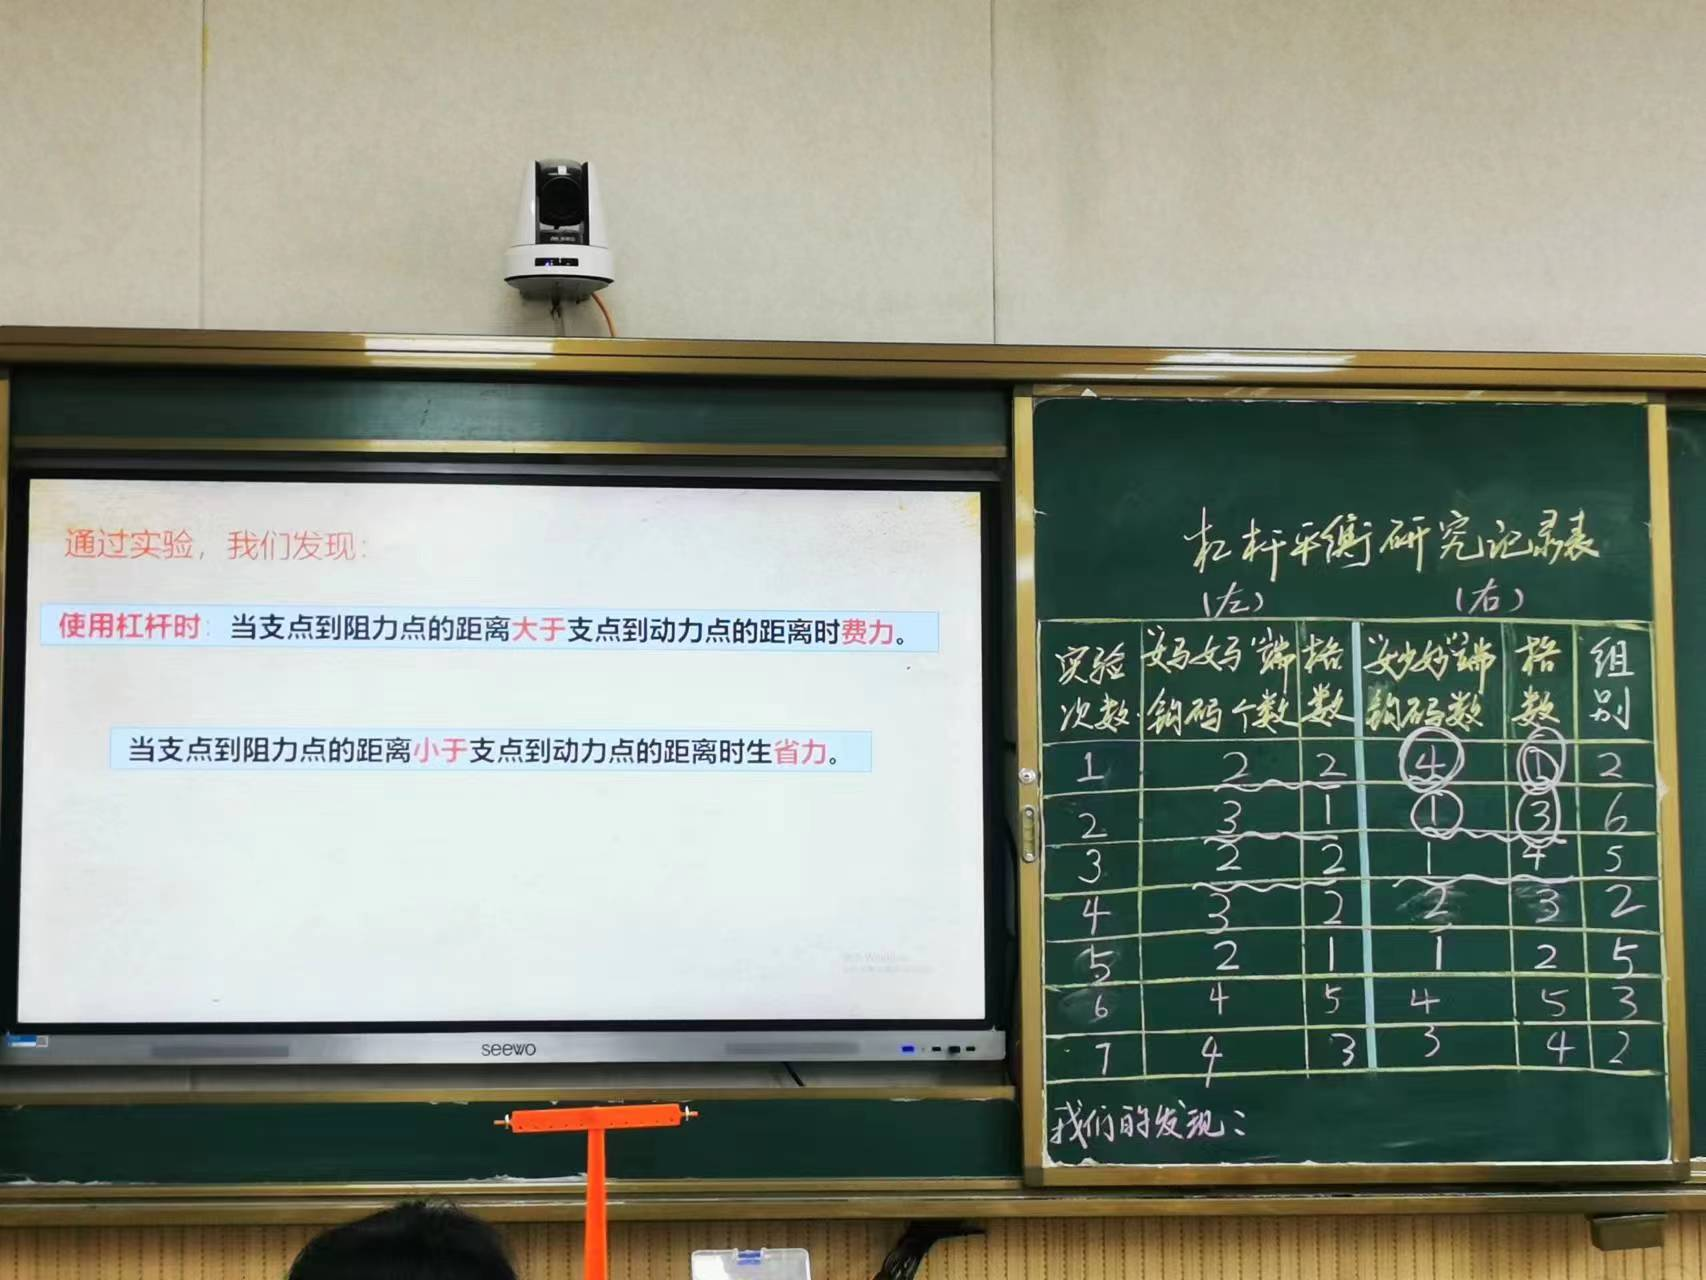 通过实验，我们发现：
使用杠杆时：当支点到阻力点的距离大于支点到动力点的距离时费力。
当支点到阻力点的距离小于支点到动力点的距离时生省力。
seewo
杠杆平衡研究记录表
（左） （右）
实验次数 "妈妈"端钩码个数 格数 "妙妙"端钩码数 格数 组别
1 2 2 4 1 2
2 3 1 1 3 6
3 2 2 1 4 5
4 3 2 2 3 2
5 2 1 1 2 5
6 4 5 4 5 3
7 4 3 3 4 2
我们的发现：